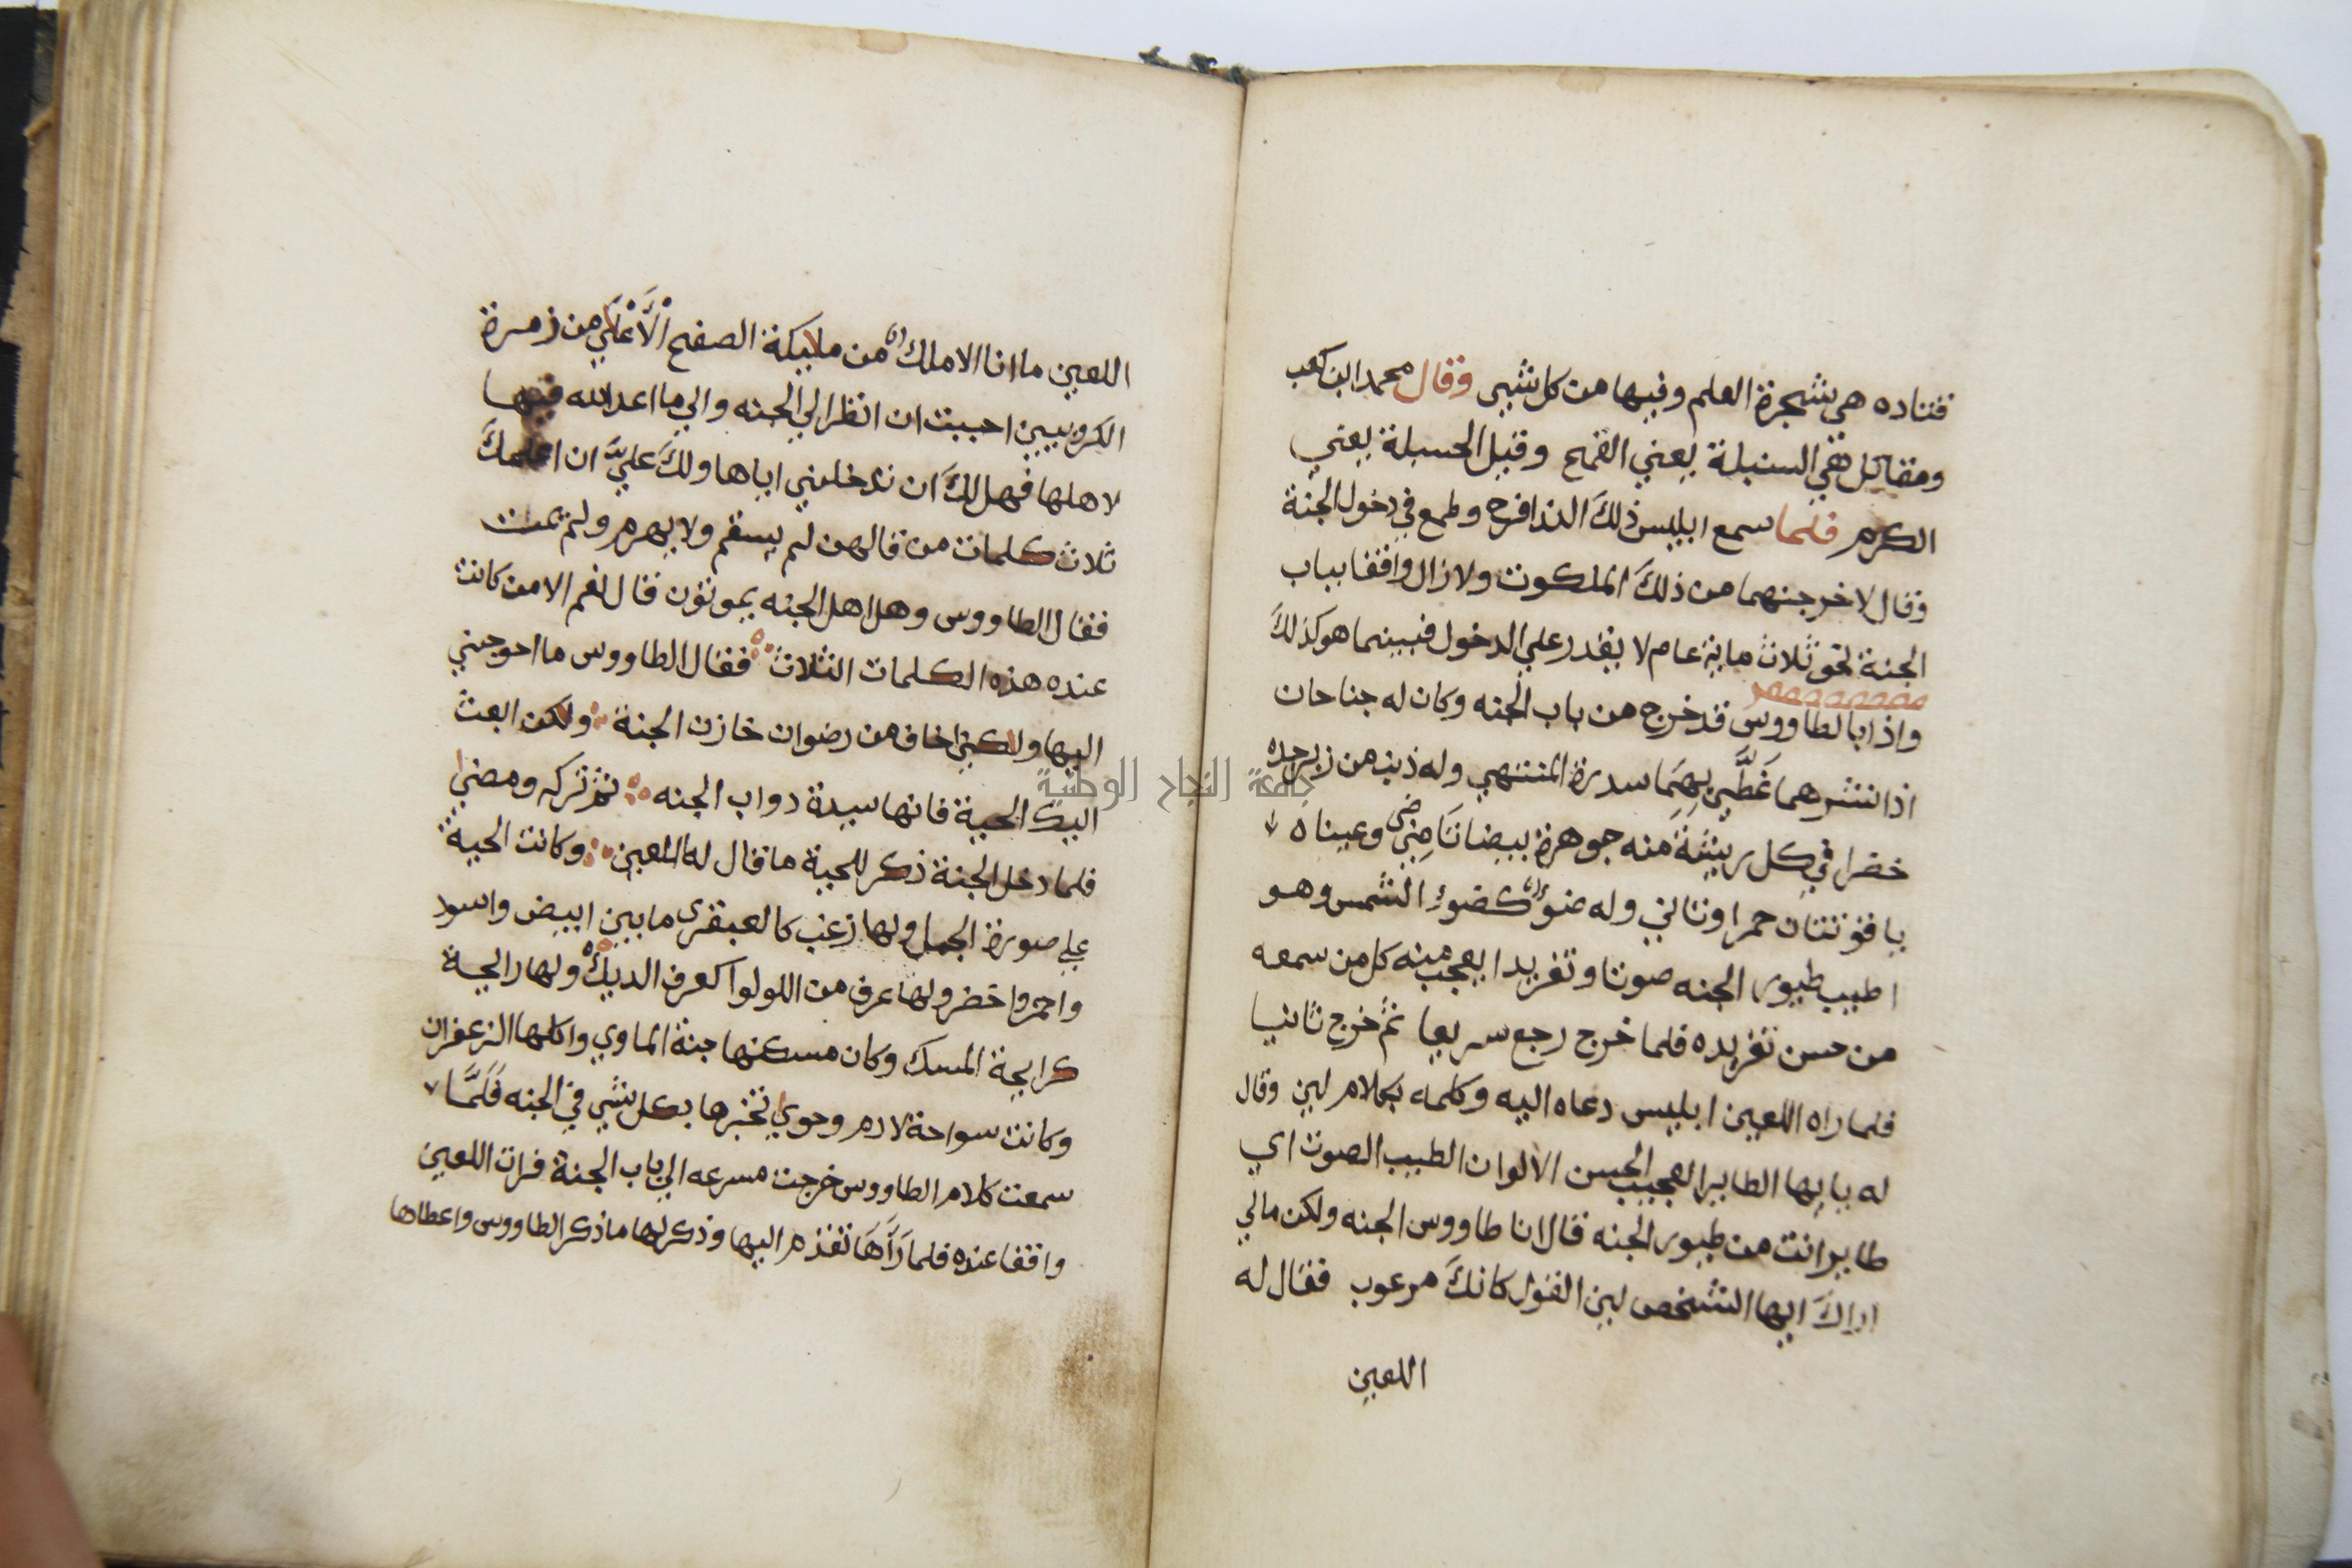 قتاده هي شجرة العلم وفيها من كل شيى وقال محمد ابن كعب
ومقاتل هي السنبلة يعني القمح وقيل الحسبلة يعني
الكرم فلما سمع ابليس ذلكَ الندا فرح وطمع في دخول الجنة
وقال لاخرجنهما من ذلكَ الملكوت ولا زال واقفا بباب
الجنة نحو ثلاث ماية عام لا يقدر علي الدخول فبينما هو كذلكَ
واذا بالطاووس قد خرج من باب الجنه وكان له جناحان
اذا نشرهما غَطَّي بِهِمَا سدرة المنتهي وله ذنب من زبرجده
خضرا في كل ريشة منه جوهرة بيضا تَامِضى وعيناه
ياقوتتان حمراوتاني وله ضوءٌ كضوء الشمس وهو
اطيب طيور الجنه صوتا وتغريدا يعجب منه كل من سمعه
من حسن تغريده فلما خرج رجع سريعا ثم خرج ثانيا
فلما راه اللعين ابليس دعاه اليه وكلمه بكلام لين وقال
له يايها الطاير العجيب الحسن الالوان الطيب الصوت اي
طاير انت من طيور الجنه قال انا طاووس الجنه ولكن مالي
اراكَ ايها الشخص لين القول كانكَ مرعوب فقال له
اللعين
اللعين ما انا الا ملك من ملايكة الصفح الأَعْلَي من زمرة
الكروبيين احببت ان انظر الي الجنه والي ما اعد الله فيها
لاهلها فهل لكَ ان تدخلني اياها ولكَ عليَّ ان اعلمكَ
ثلاث كلمات من قالهن لم يسقم ولا يهرم ولم يمت
فقال الطاووس وهل اهل الجنه يموتون قال نعم الا من كانت
عنده هذه الكلمات الثلاث فقال الطاووس ما احوجني
اليها ولكنى اخاف من رضوان خازن الجنة ولكن ابعث
اليك الحية فانها سيدة دواب الجنه ثم تركه ومضى
فلما دخل الجنة ذكر للحية ما قال له اللعين وكانت الحية
علي صورة الجمل ولها زغب كالعبقري ما بين ابيض واسود
واحمر واخضر ولها عرف من اللولوا كعرف الديك ولها رايحة
كرايحة المسك وكان مسكنها جنة الماوي واكلها الزعفران
وكانت سواحة لادم وحوي تخبرها بكل شي في الجنه فَلَمَّا
سمعت كلام الطاووس خرجت مسرعه الي باب الجنة فرات اللعين
واقفا عنده فلما رَآهَا تقدم اليها وذكر لها ما ذكر الطاووس واعطاها
جامعة النجاح الوطنية